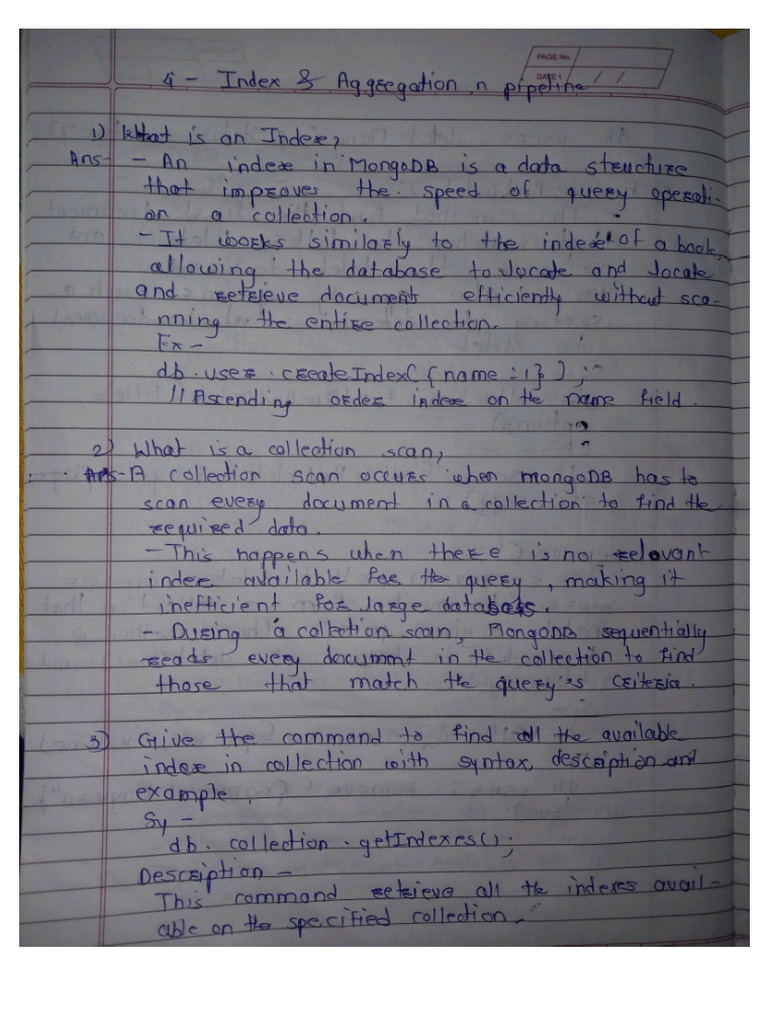 PAGE No.
DATE: / /
4 - Index & Aggregation n pipeline
1) What is an Index,
Ans- - An index in MongoDB is a data structure
that improves the speed of query operati-
on a collection.
- It works similarly to the index of a book,
allowing the database to locate and locate
and retrieve document efficiently without sca-
nning the entire collection.
Ex -
db.user.createIndex({name:1});
// Ascending order index on the name field.
2) What is a collection scan,
Ans- A collection scan occurs when mongoDB has to
scan every document in a collection to find the
required data.
- This happens when there is no relevant
index available for the query, making it
inefficient for large datasets.
- During a collection scan, MongoDB sequentially
reads every document in the collection to find
those that match the query's criteria.
3) Give the command to find all the available
index in collection with syntax, description and
example.
Sy -
db.collection.getIndexes();
Description -
This command retrieve all the indexes avail-
able on the specified collection.